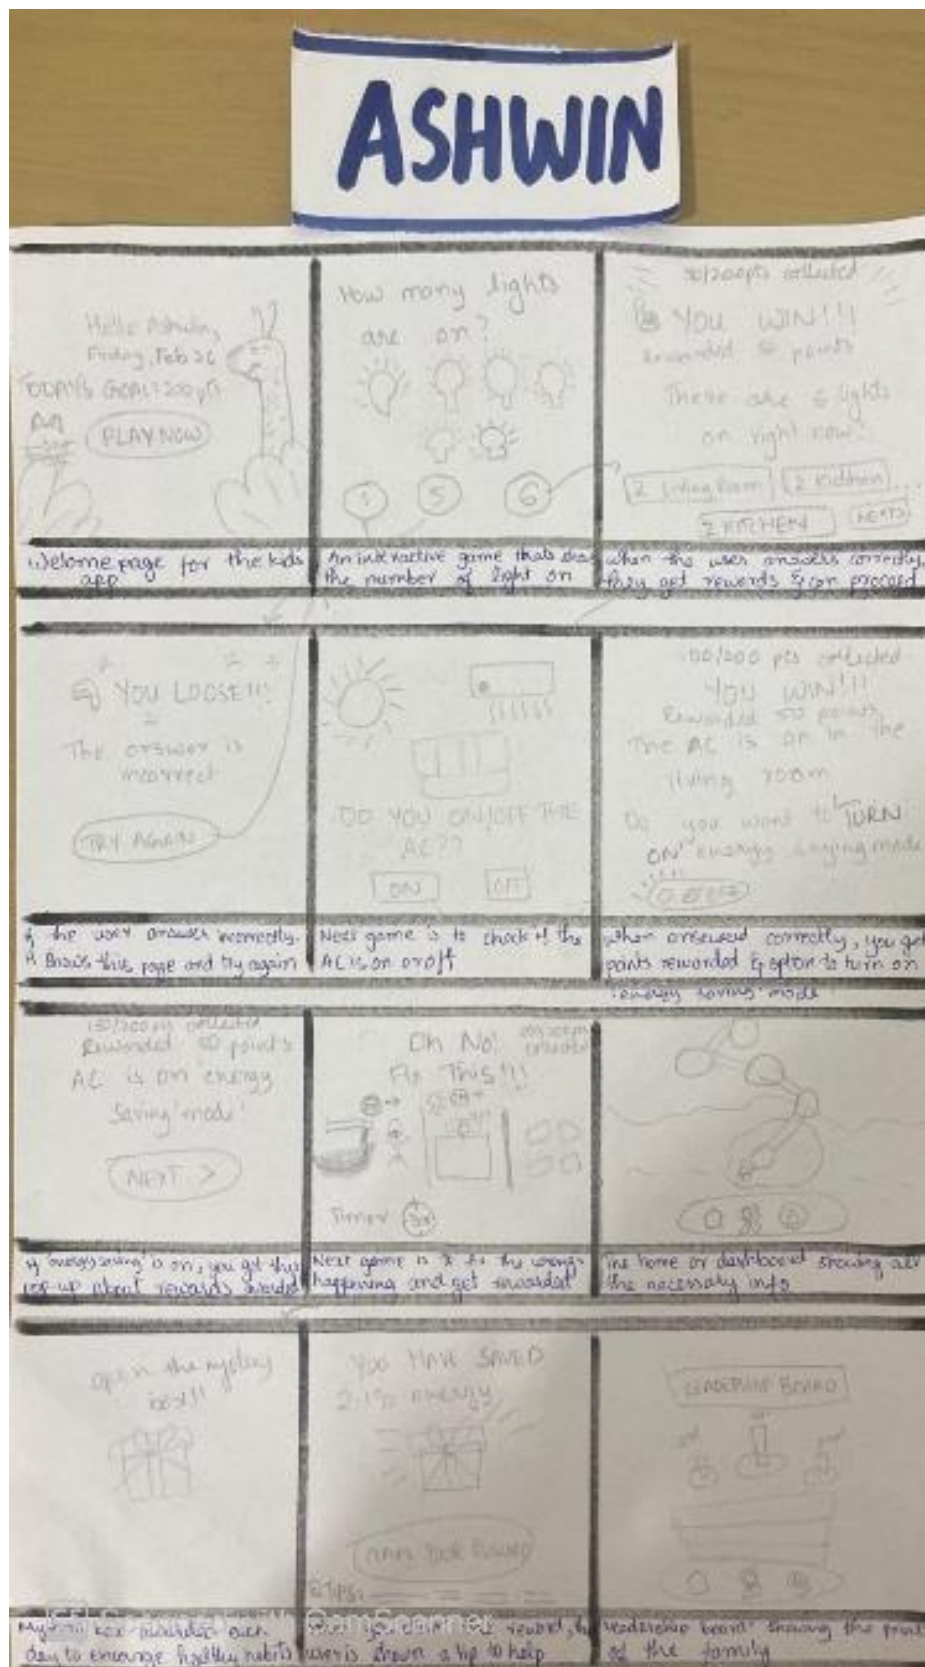 ASHWIN
Hello Ashwin,
Friday, Feb 26
TODAY'S GOAL: 200 pts
PLAY NOW
Welcome page for the kids
app
How many lights
are on?
1
5
6
An interactive game thats
the number of light on
50/200pts collected
YOU WIN!!!
Rewarded 50 points
There are 6 lights
on right now!
2 Living Room
2 Kidsroom
...
2 KITCHEN
NEXT>
when the user answers correctly,
they get rewards & can proceed
YOU LOOSE!!!
The answer is
incorrect
TRY AGAIN
If the user answer incorrectly.
this page and try again
DO YOU ON/OFF THE
AC??
ON
OFF
Next game is to check if the
AC is on or off
100/200 pts collected
YOU WIN!!!
Rewarded 50 points
The AC is on in the
living room
Do you want to 'TURN
ON' energy saving mode
OFF
when answered correctly, you get
points rewarded & option to turn on
'energy saving' mode
150/200 pts collected
Rewarded 50 points
AC is on 'energy
saving' mode'
NEXT >
If 'energy saving' is on, you get this
pop up about rewards
Oh No!
Fix This!!!
Timer
Next game is to fix the wrongs
happening and get rewarded
The home or dashboard showing all
the necessary info
Open the mystery
box!!
Mystery box
day to encourage healthy habits
YOU HAVE SAVED
2.1% energy
CLAIM YOUR REWARD
TIPS:
reward, the
user is shown a tip to help
LEADERSHIP BOARD
leadership board showing the point
of the family
CamScanner